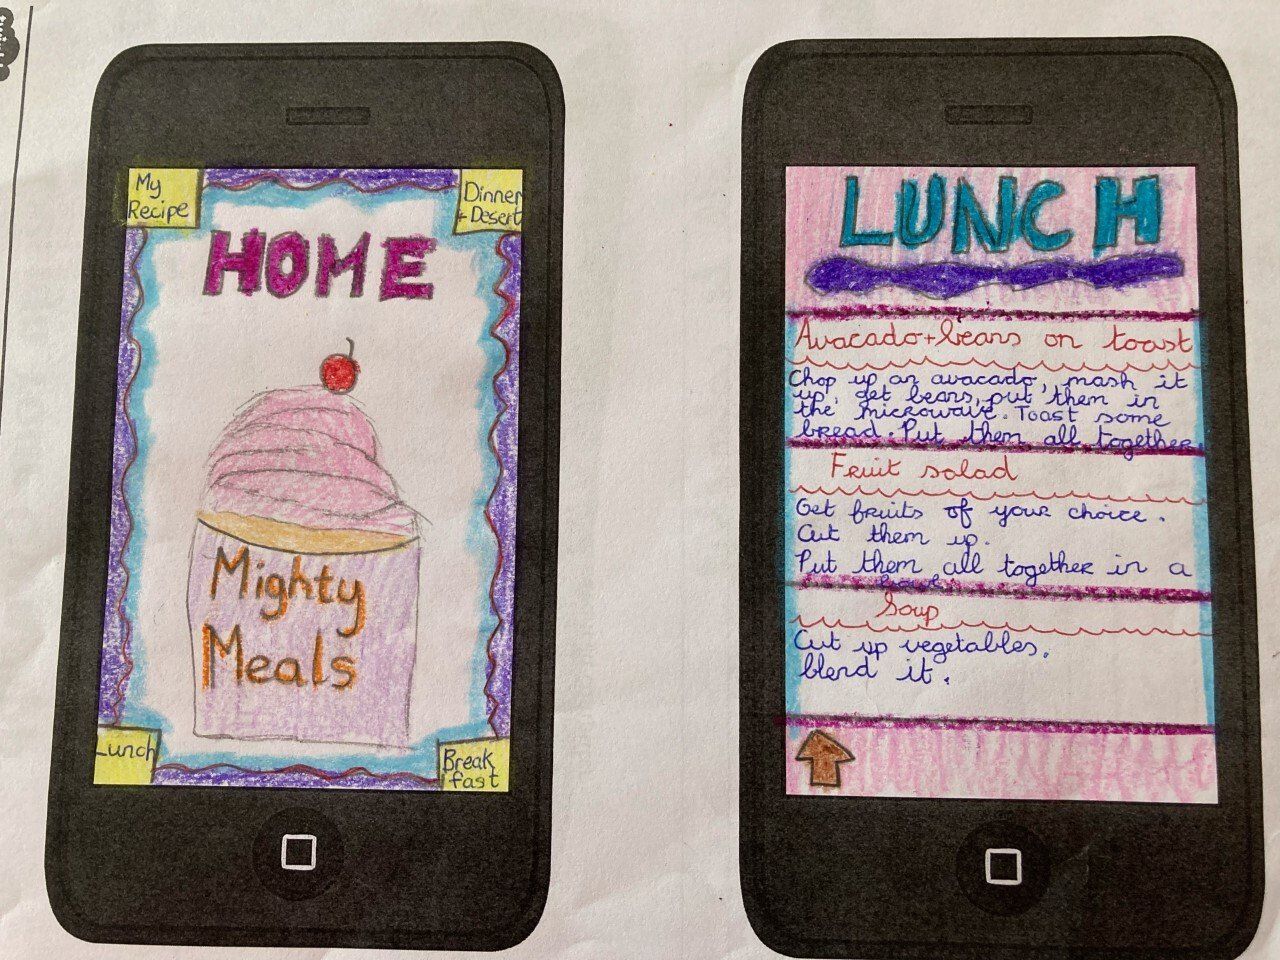 My
Recipe
Dinner
+ Desert
HOME
Mighty
Meals
Lunch
Break
fast
LUNCH
Avacado+beans on toast
Chop up an avacado, mash it
up, get beans, put them in
the microwave. Toast some
bread. Put them all together.
Fruit salad
Get fruits of your choice.
Cut them up.
Put them all together in a
bowl.
Soup
Cut up vegetables.
blend it.